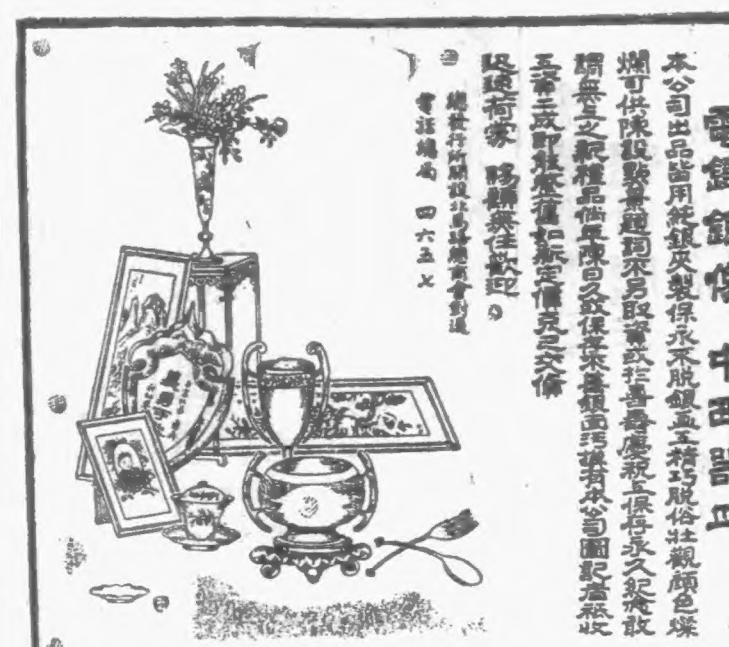 電鍍銀 中西器皿
本公司出品皆用純銀灰製保永不脱銀画工精巧脱俗壮觀顔色燦
爛可供陳設點景題詞不另取資或於喜壽慶祝上保存永久紀念敢
謂無上之祝禮品倘年陳日久或保存不善銀面汚損有本公司圖記者祗收
工資二成即能整舊如新定價克己交價
迅速荷蒙 賜顧無任歡迎。
總發行所開設北馬路總商會對過
電話總局 四六五七